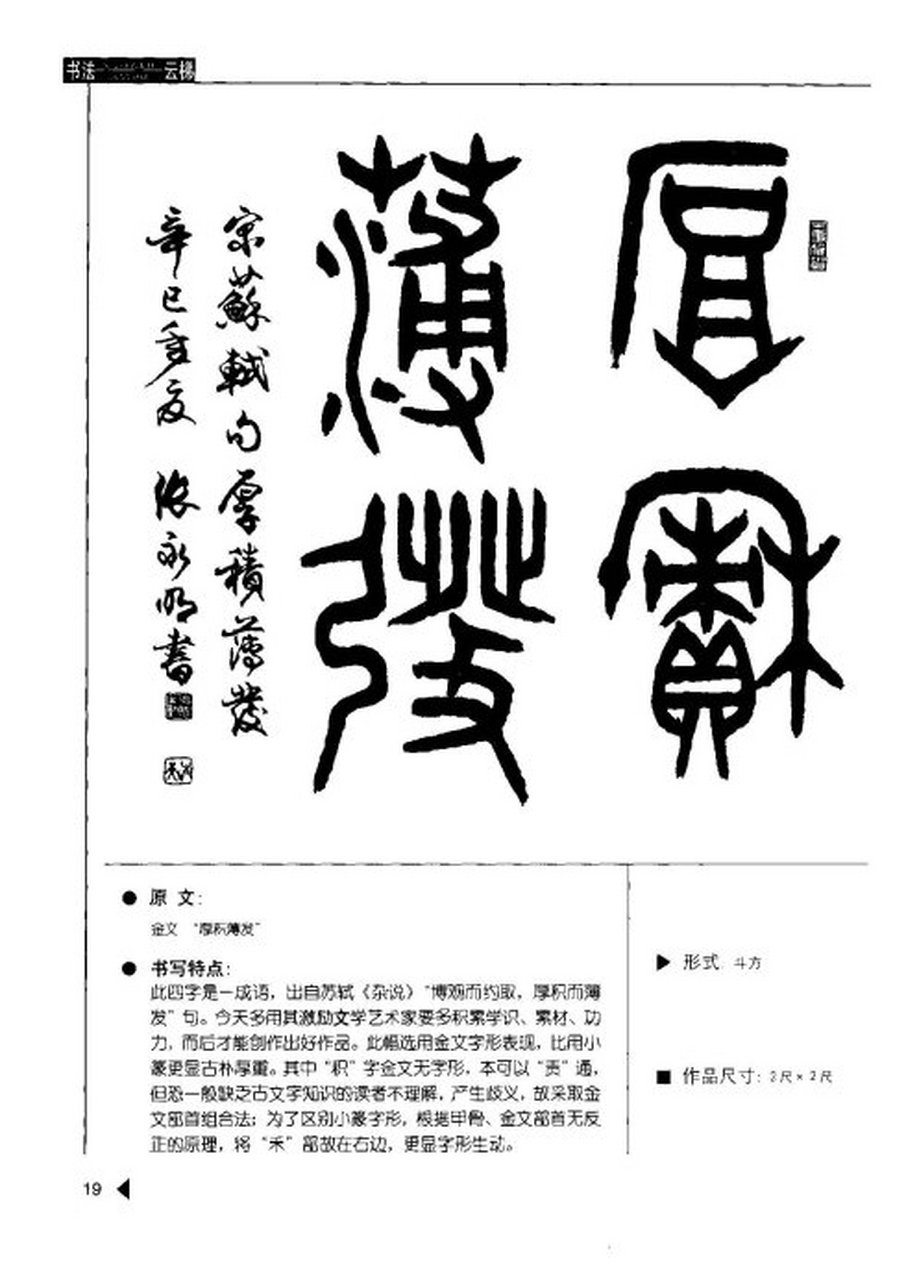 书法
云梯
厚積
薄發
宋蘇軾句厚積薄發
辛巳季夏 張永明書
● 原 文：
金文 “厚积薄发”
● 书写特点：
此四字是一成语，出自苏轼《杂说》“博观而约取，厚积而薄
发”句。今天多用其激励文学艺术家要多积累学识、素材、功
力，而后才能创作出好作品。此幅选用金文字形表现，比用小
篆更显古朴厚重。其中“积”字金文无字形，本可以“责”通，
但恐一般缺乏古文字知识的读者不理解，产生歧义，故采取金
文部首组合法；为了区别小篆字形，根据甲骨、金文部首无反
正的原理，将“禾”部放在右边，更显字形生动。
▶ 形式：斗方
■ 作品尺寸：2尺×2尺
19